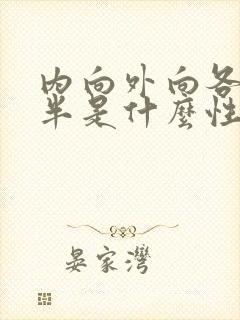 內向外向各
半是什麼性
晏家灣